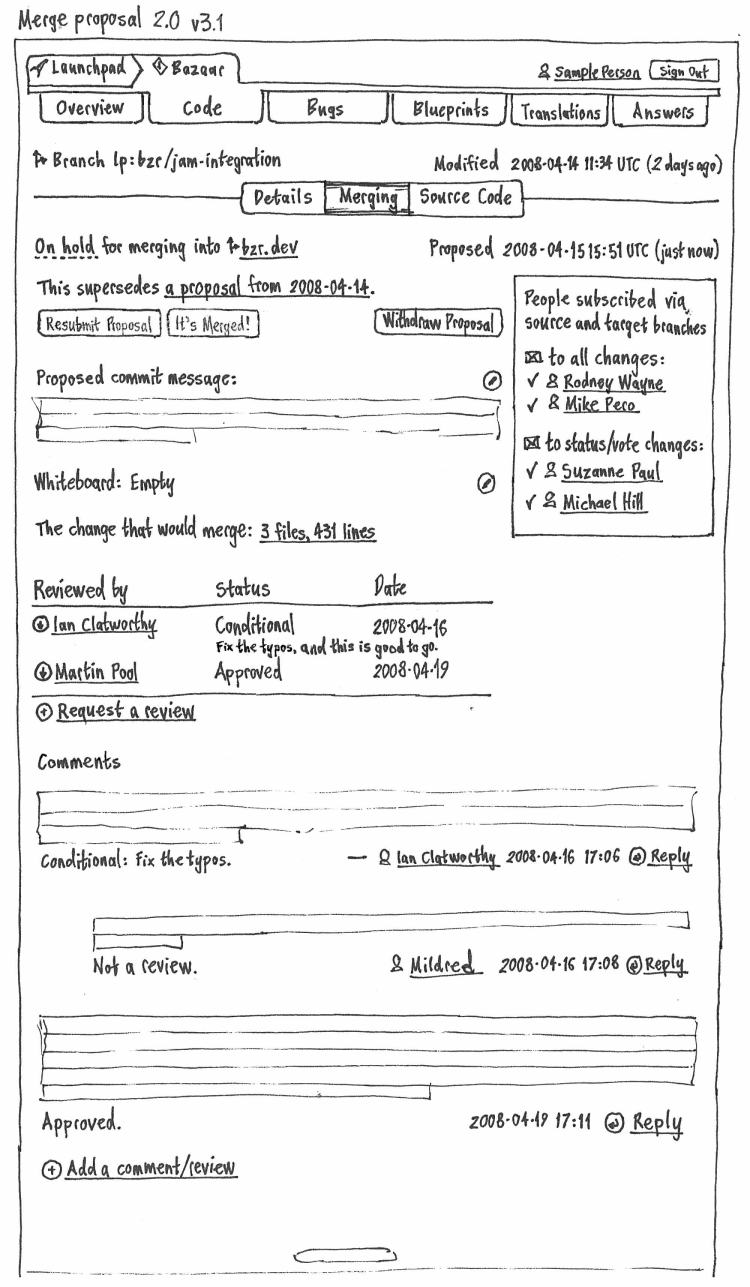 Merge proposal 2.0 v3.1
Launchpad Bazaar Sample Person Sign Out
Overview Code Bugs Blueprints Translations Answers
Branch lp:bzr/jam-integration Modified 2008-04-14 11:34 UTC (2 days ago)
Details Merging Source Code
On hold for merging into bzr.dev Proposed 2008-04-15 15:51 UTC (just now)
This supersedes a proposal from 2008-04-14.
Resubmit Proposal It's Merged! Withdraw Proposal
People subscribed via
source and target branches
to all changes:
Rodney Wayne
Mike Peco
to status/vote changes:
Suzanne Paul
Michael Hill
Proposed commit message:
Whiteboard: Empty
The change that would merge: 3 files, 431 lines
Reviewed by Status Date
Ian Clatworthy Conditional 2008-04-16
Fix the typos, and this is good to go.
Martin Pool Approved 2008-04-19
Request a review
Comments
Conditional: Fix the typos. — Ian Clatworthy 2008-04-16 17:06 Reply
Not a review. Mildred 2008-04-16 17:08 Reply
Approved. 2008-04-19 17:11 Reply
Add a comment/review